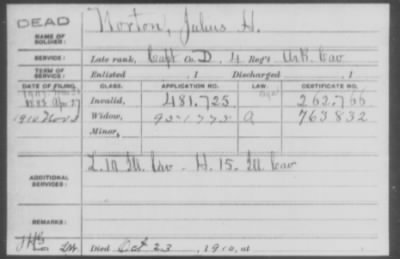 DEAD
NAME OF SOLDIER: Norton, Julius H.
SERVICE: Late rank, Capt Co. D, 4 Reg't Cav
TERM OF SERVICE: Enlisted , 1 Discharged , 1
DATE OF FILING. CLASS. APPLICATION NO. LAW. CERTIFICATE NO.
1883 Apr 27 Invalid, 481.725 262.766
1910 Nov Widow, A 763832
Minor,
ADDITIONAL SERVICES: M Cav - H. 15. M Cav
REMARKS:
Died Oct 23 , 1910, at